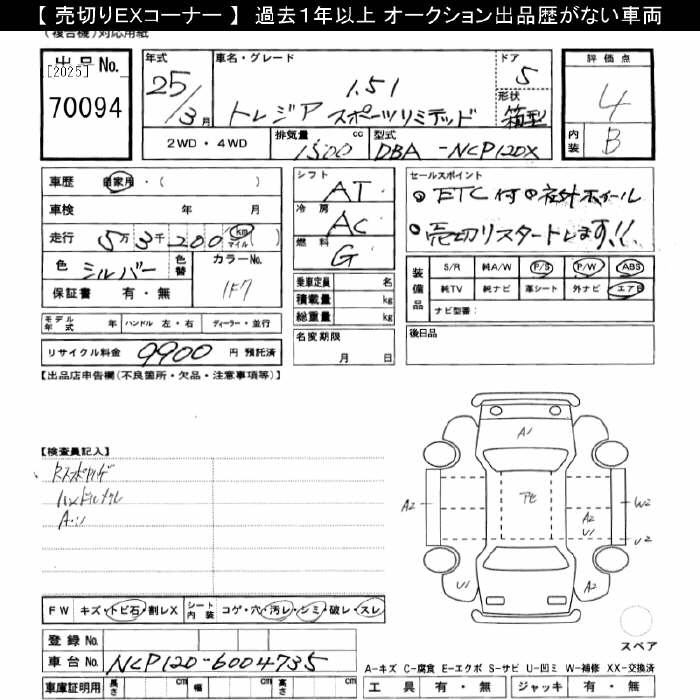 【 売切りEXコーナー 】 過去1年以上 オークション出品歴がない車両
(複合機)対応用紙
出品No.
[2025]
70094
年式
25/3月
車名・グレード
1.5i
トレジア スポーツリミテッド
ドア
5
形状
箱型
評価点
4
内装
B
2WD・4WD
排気量
1500 cc
型式
DBA -NCP120X
車歴 自家用・( )
車検 年 月
走行 5万3千200 km マイル ( )
色 シルバー
色替
カラーNo.
1F7
保証書 有・無
シフト
AT
冷房
AC
燃料
G
乗車定員 名
積載量 kg
総重量 kg
セールスポイント
ETC付 社外ホイール
売切りスタートします!!
装備品
S/R 純A/W P/S P/W ABS
純TV 純ナビ 革シート 外ナビ エアB
ナビ型番:
モデル年式 年 ハンドル 左・右 ディーラー・並行
リサイクル料金 9900 円 預託済
名変期限
月 日
後日品
【出品店申告欄(不良箇所・欠品・注意事項等)】
【検査員記入】
A1
A2
アセ
W2
A2
U1
U2
U1
A2
スペア
FW キズ・トビ石・割レX シート内装 コゲ・穴・汚レ・シミ・破レ・スレ
登録No.
車台No. NCP120-6004735
車庫証明用 長さ cm 幅 cm 高さ cm
A-キズ C-腐食 E-エクボ S-サビ U-凹ミ W-補修 XX-交換済
工具 有・無 ジャッキ 有・無